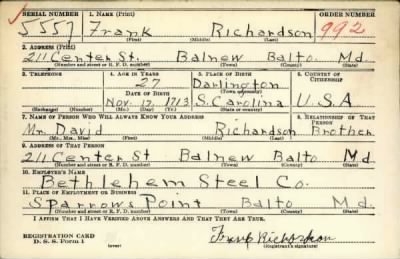 SERIAL NUMBER 1. NAME (Print) ORDER NUMBER
5557 Frank Richardson 992
(First) (Middle) (Last)
2. ADDRESS (Print)
211 Center St. Balnew Balto. Md.
(Number and street or R. F. D. number) (Town) (County) (State)
3. TELEPHONE 4. AGE IN YEARS 5. PLACE OF BIRTH 6. COUNTRY OF CITIZENSHIP
27 Darlington
DATE OF BIRTH (Town or county)
Nov. 17, 1713 S. Carolina U.S.A
(Exchange) (Number) (Mo.) (Day) (Yr.) (State or country)
7. NAME OF PERSON WHO WILL ALWAYS KNOW YOUR ADDRESS 8. RELATIONSHIP OF THAT PERSON
Mr. David Richardson Brother
(Mr., Mrs., Miss) (First) (Middle) (Last)
9. ADDRESS OF THAT PERSON
211 Center St Balnew Balto Md.
(Number and street or R. F. D. number) (Town) (County) (State)
10. EMPLOYER'S NAME
Bethlehem Steel Co.
11. PLACE OF EMPLOYMENT OR BUSINESS
Sparrows Point Balto Md.
(Number and street or R. F. D. number) (Town) (County) (State)
I AFFIRM THAT I HAVE VERIFIED ABOVE ANSWERS AND THAT THEY ARE TRUE.
REGISTRATION CARD
D. S. S. Form 1 (over) Frank Richardson
(Registrant's signature)